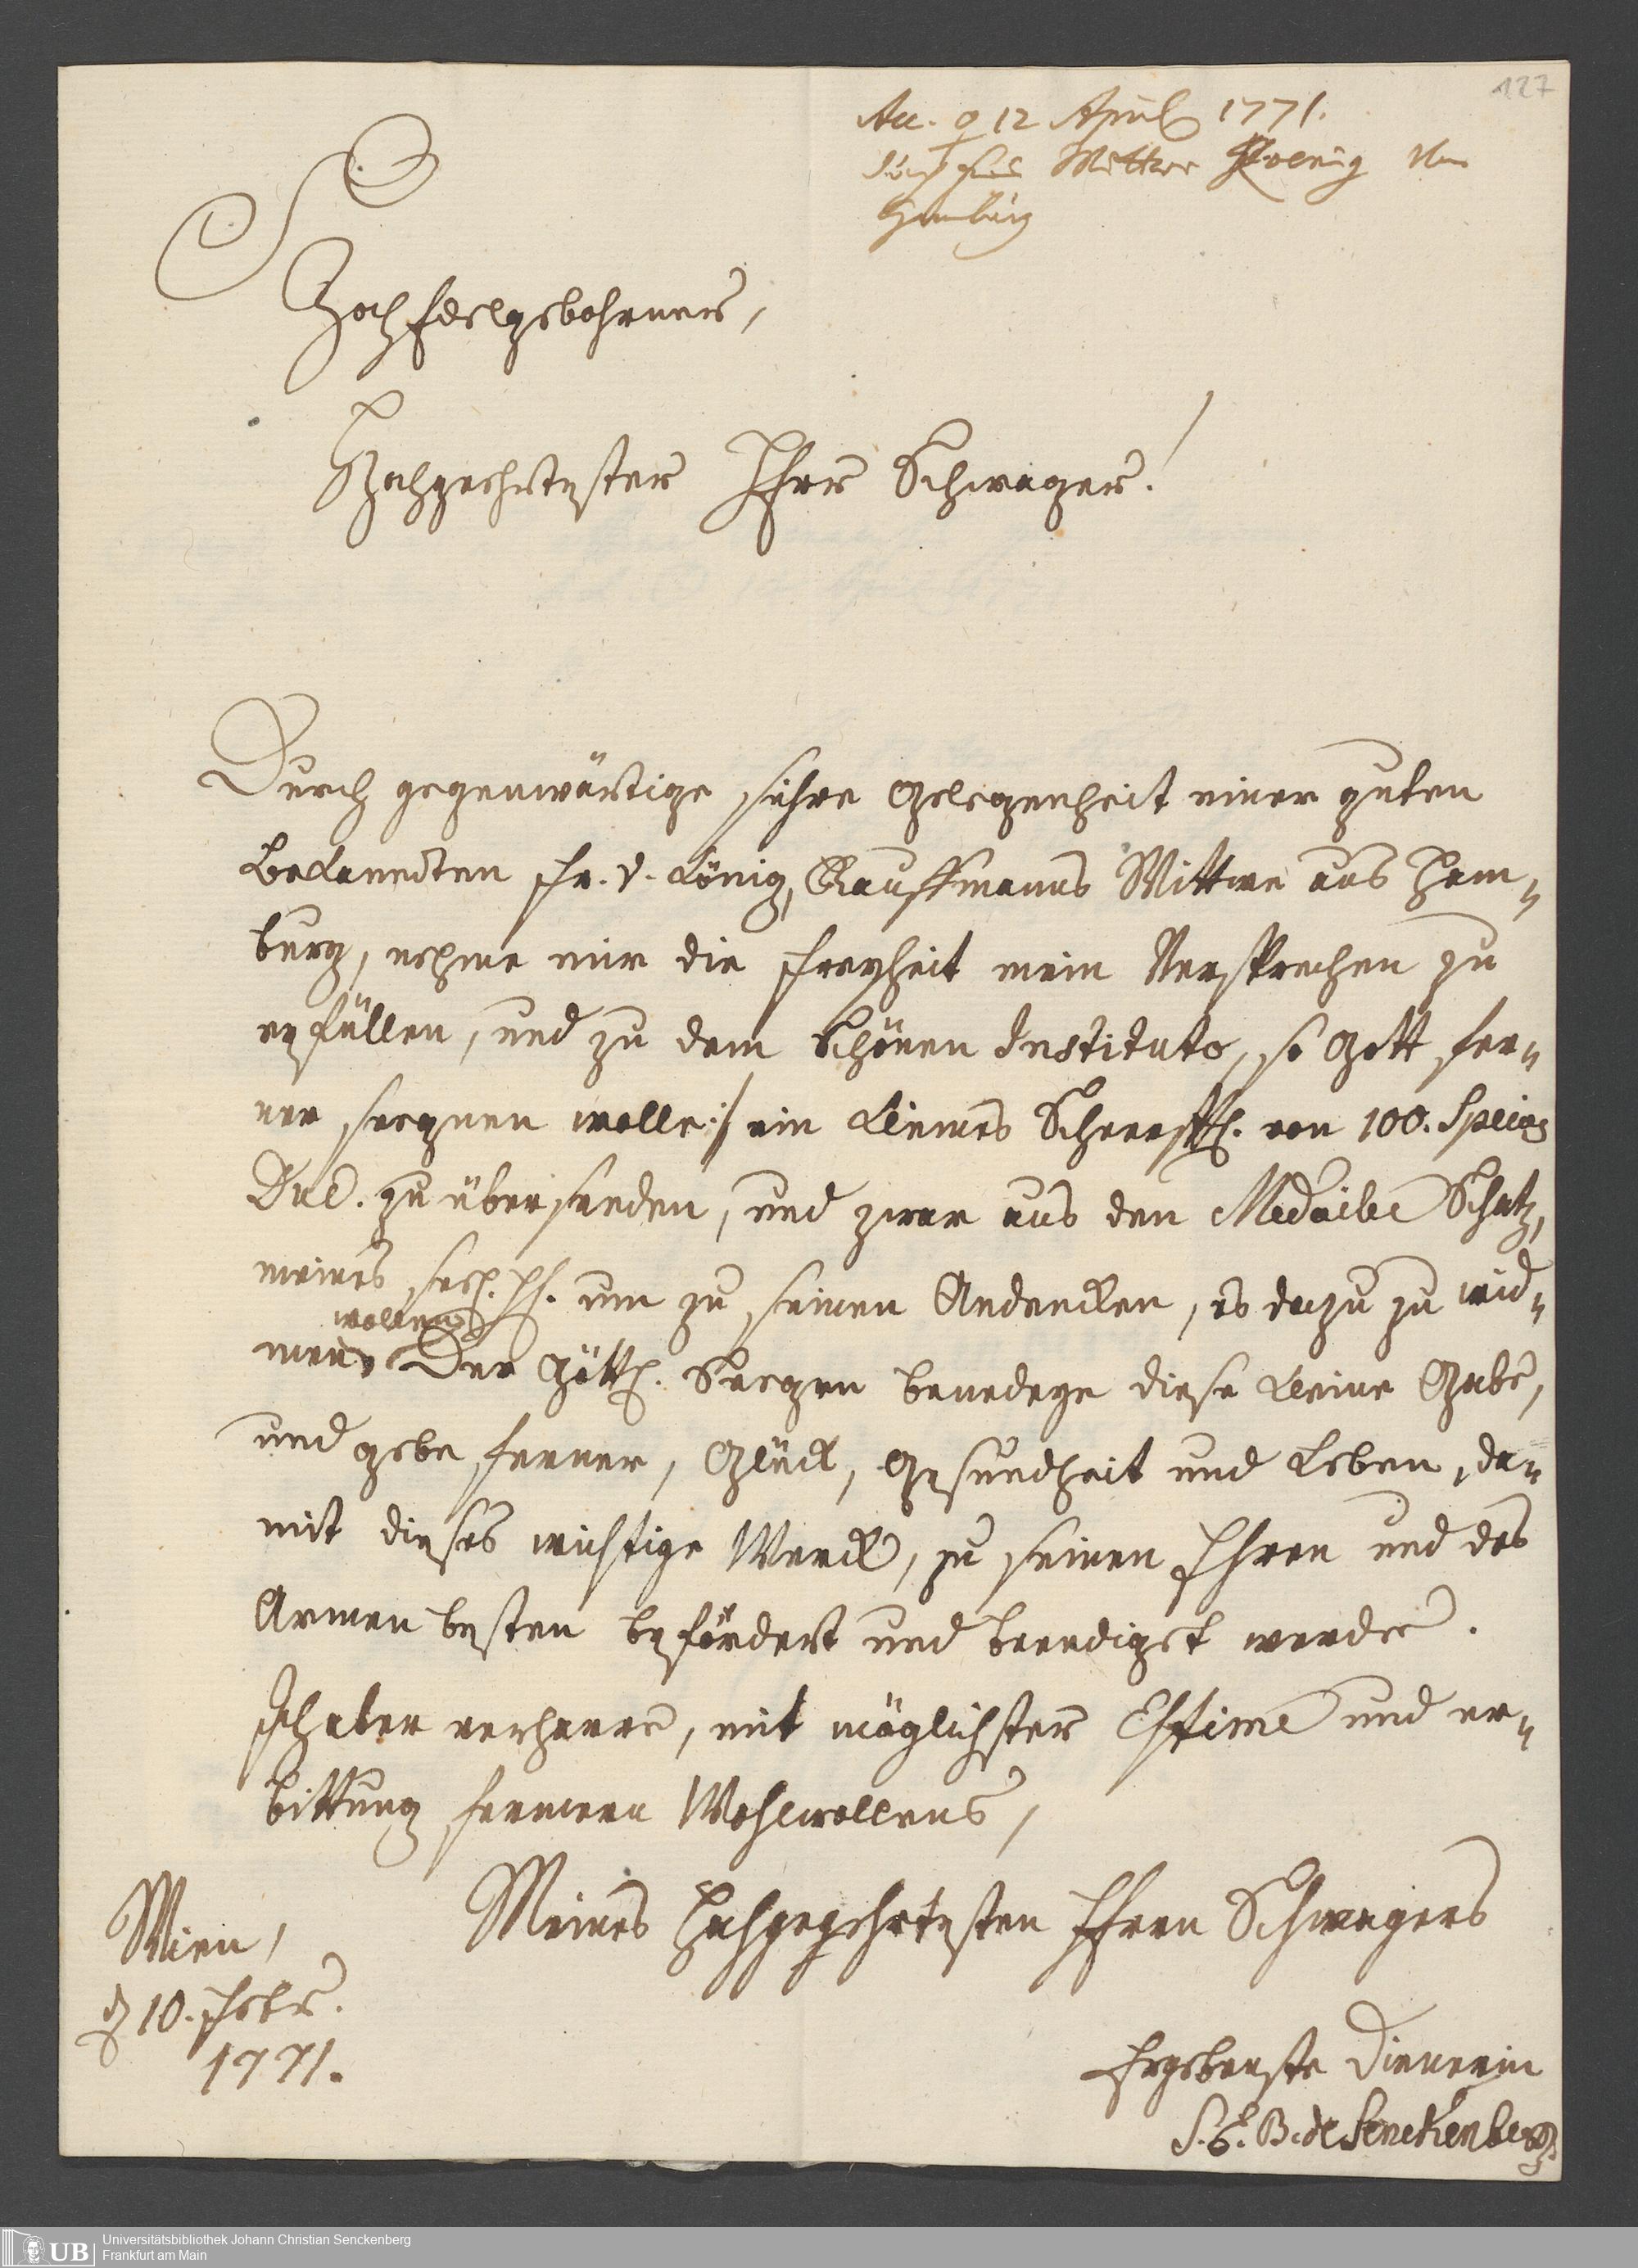 127
Acc. ♀ 12 April 1771.
durch Frau Wittwe Koenig von
Hamburg
HochEdelgebohrner,
Hochgeehrtester Herr Schwager!
Durch gegenwärtige sichre Gelegenheit einer guten
bekanndten Fr. v. König, Kauffmanns Wittwe aus Ham-
burg, nehme mir die Freyheit mein Versprechen zu
erfüllen, und zu dem schönen Instituto, so Gott fer-
ner seegnen wolle :/ ein kleines Scherfl. von 100. Species
Duc. zu übersenden, und zwar aus den Medaile Schatz,
meines seel. H. um zu seinen Andencken, es dazu zu wid-
wollen
men. Der Göttl. Seegen benedeye diese kleine Gabe,
und gebe ferner, Glück, Gesundheit und Leben, da-
mit dieses wichtige Werck, zu seinen Ehren und des
Armen besten befördert und beendiget werde.
Ich aber verharre, mit möglichster Estime und er-
bittung ferneren Wohlwollens,
Meines Hochgeehrtesten Herrn Schwagers
Wien,
d 10. Febr.
1771.
Ergebenste Dienerin
S. E. B. de Senckenberg
UB
Universitätsbibliothek Johann Christian Senckenberg
Frankfurt am Main